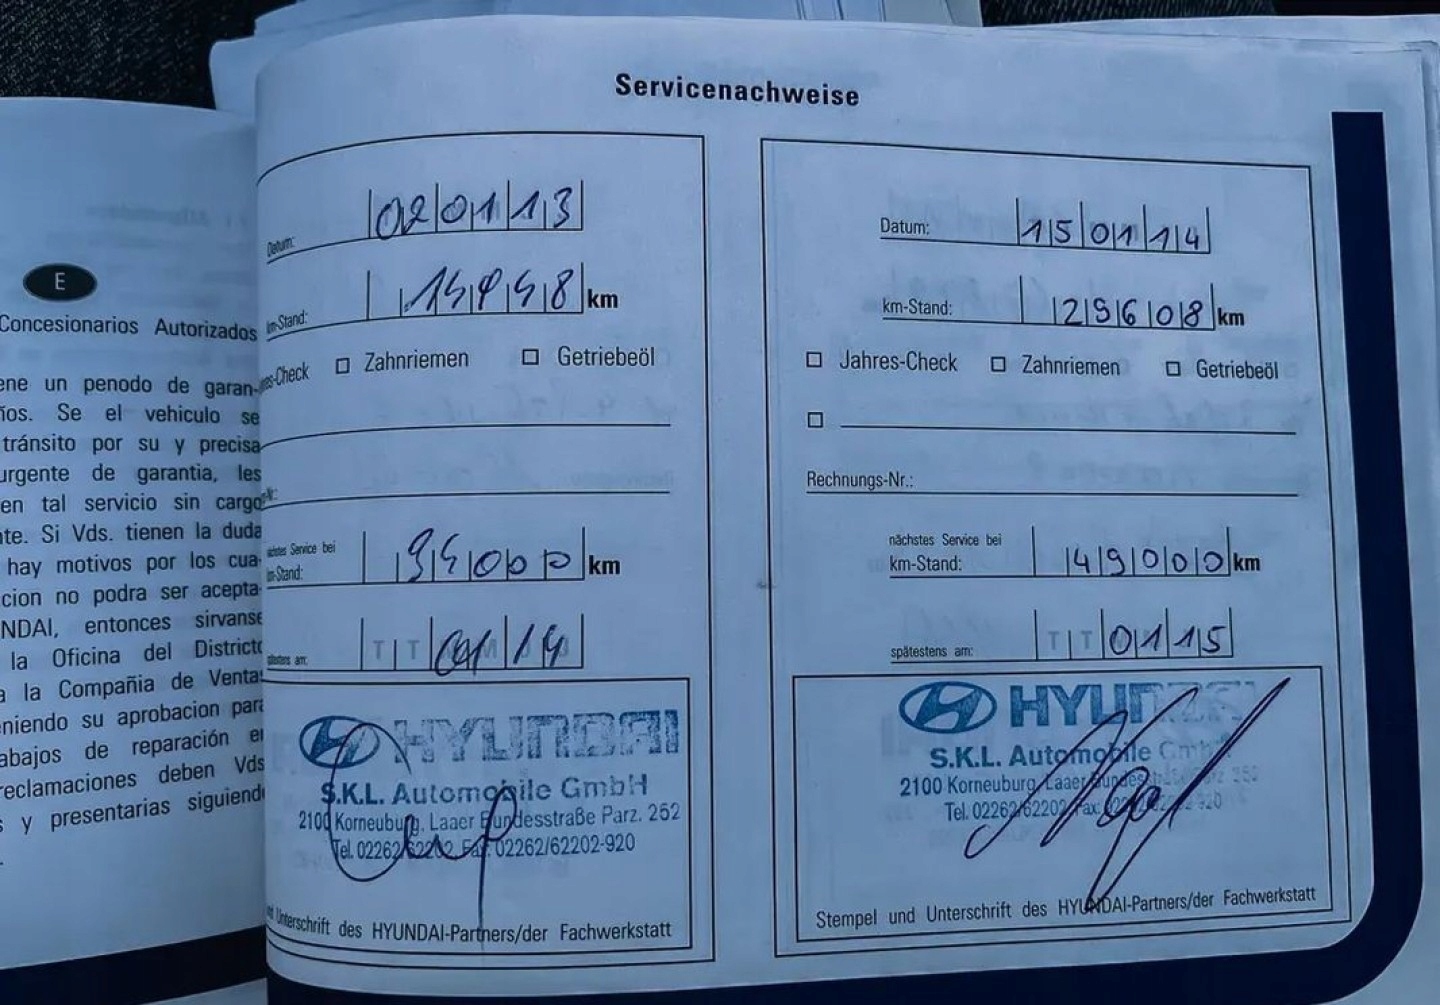 E
Concesionarios Autorizados
ene un penodo de garan-
ños. Se el vehiculo se
tránsito por su y precisa
urgente de garantia, les
en tal servicio sin cargo
nte. Si Vds. tienen la duda
hay motivos por los cua-
cion no podra ser acepta-
NDAI, entonces sirvanse
la Oficina del Districto
a la Compañia de Ventas
eniendo su aprobacion para
abajos de reparación en
reclamaciones deben Vds
s y presentarias siguiendo
Servicenachweise
Datum: 02 01 13
km-Stand: km
res-Check Zahnriemen Getriebeöl
nächstes Service bei
km-Stand: 34000 km
spätestens am: TT 01 14
HYUNDAI
S.K.L. Automobile GmbH
2100 Korneuburg, Laaer Bundesstraße Parz. 252
Tel. 02262/62202 Fax 02262/62202-920
Unterschrift des HYUNDAI-Partners/der Fachwerkstatt
Datum: 15 01 14
km-Stand: 29608 km
Jahres-Check Zahnriemen Getriebeöl
Rechnungs-Nr.:
nächstes Service bei
km-Stand: 49000 km
spätestens am: TT 01 15
HYUNDAI
S.K.L. Automobile GmbH
2100 Korneuburg, Laaer Bundesstraße
Tel. 02262/62202 Fax
Stempel und Unterschrift des HYUNDAI-Partners/der Fachwerkstatt